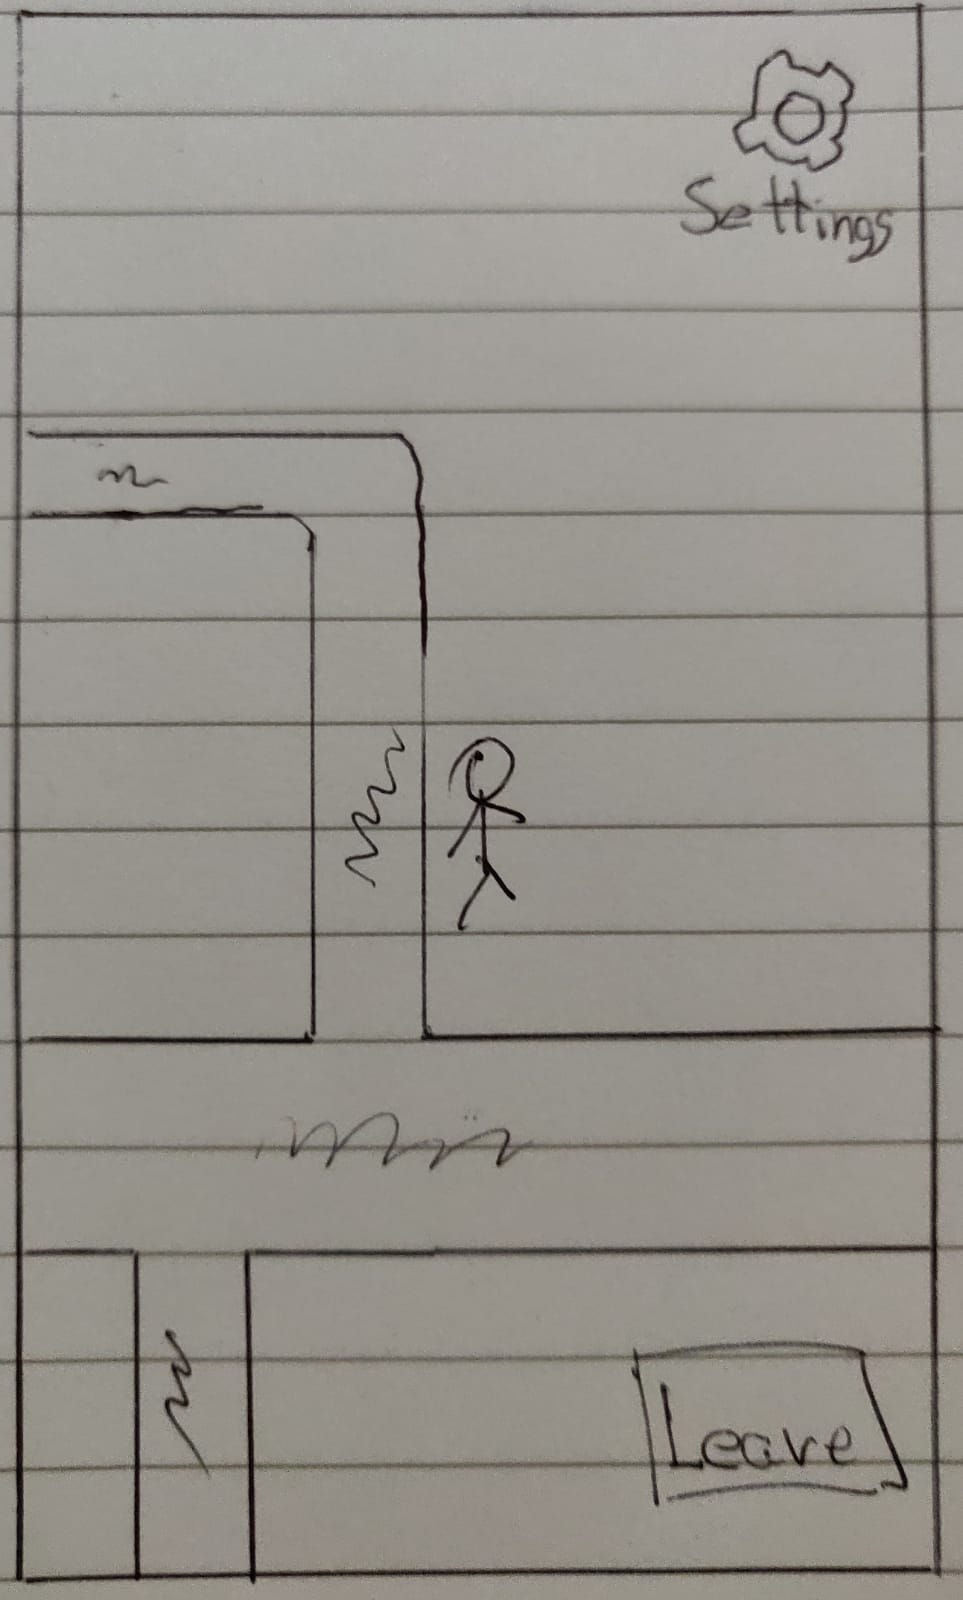 Settings
Leave